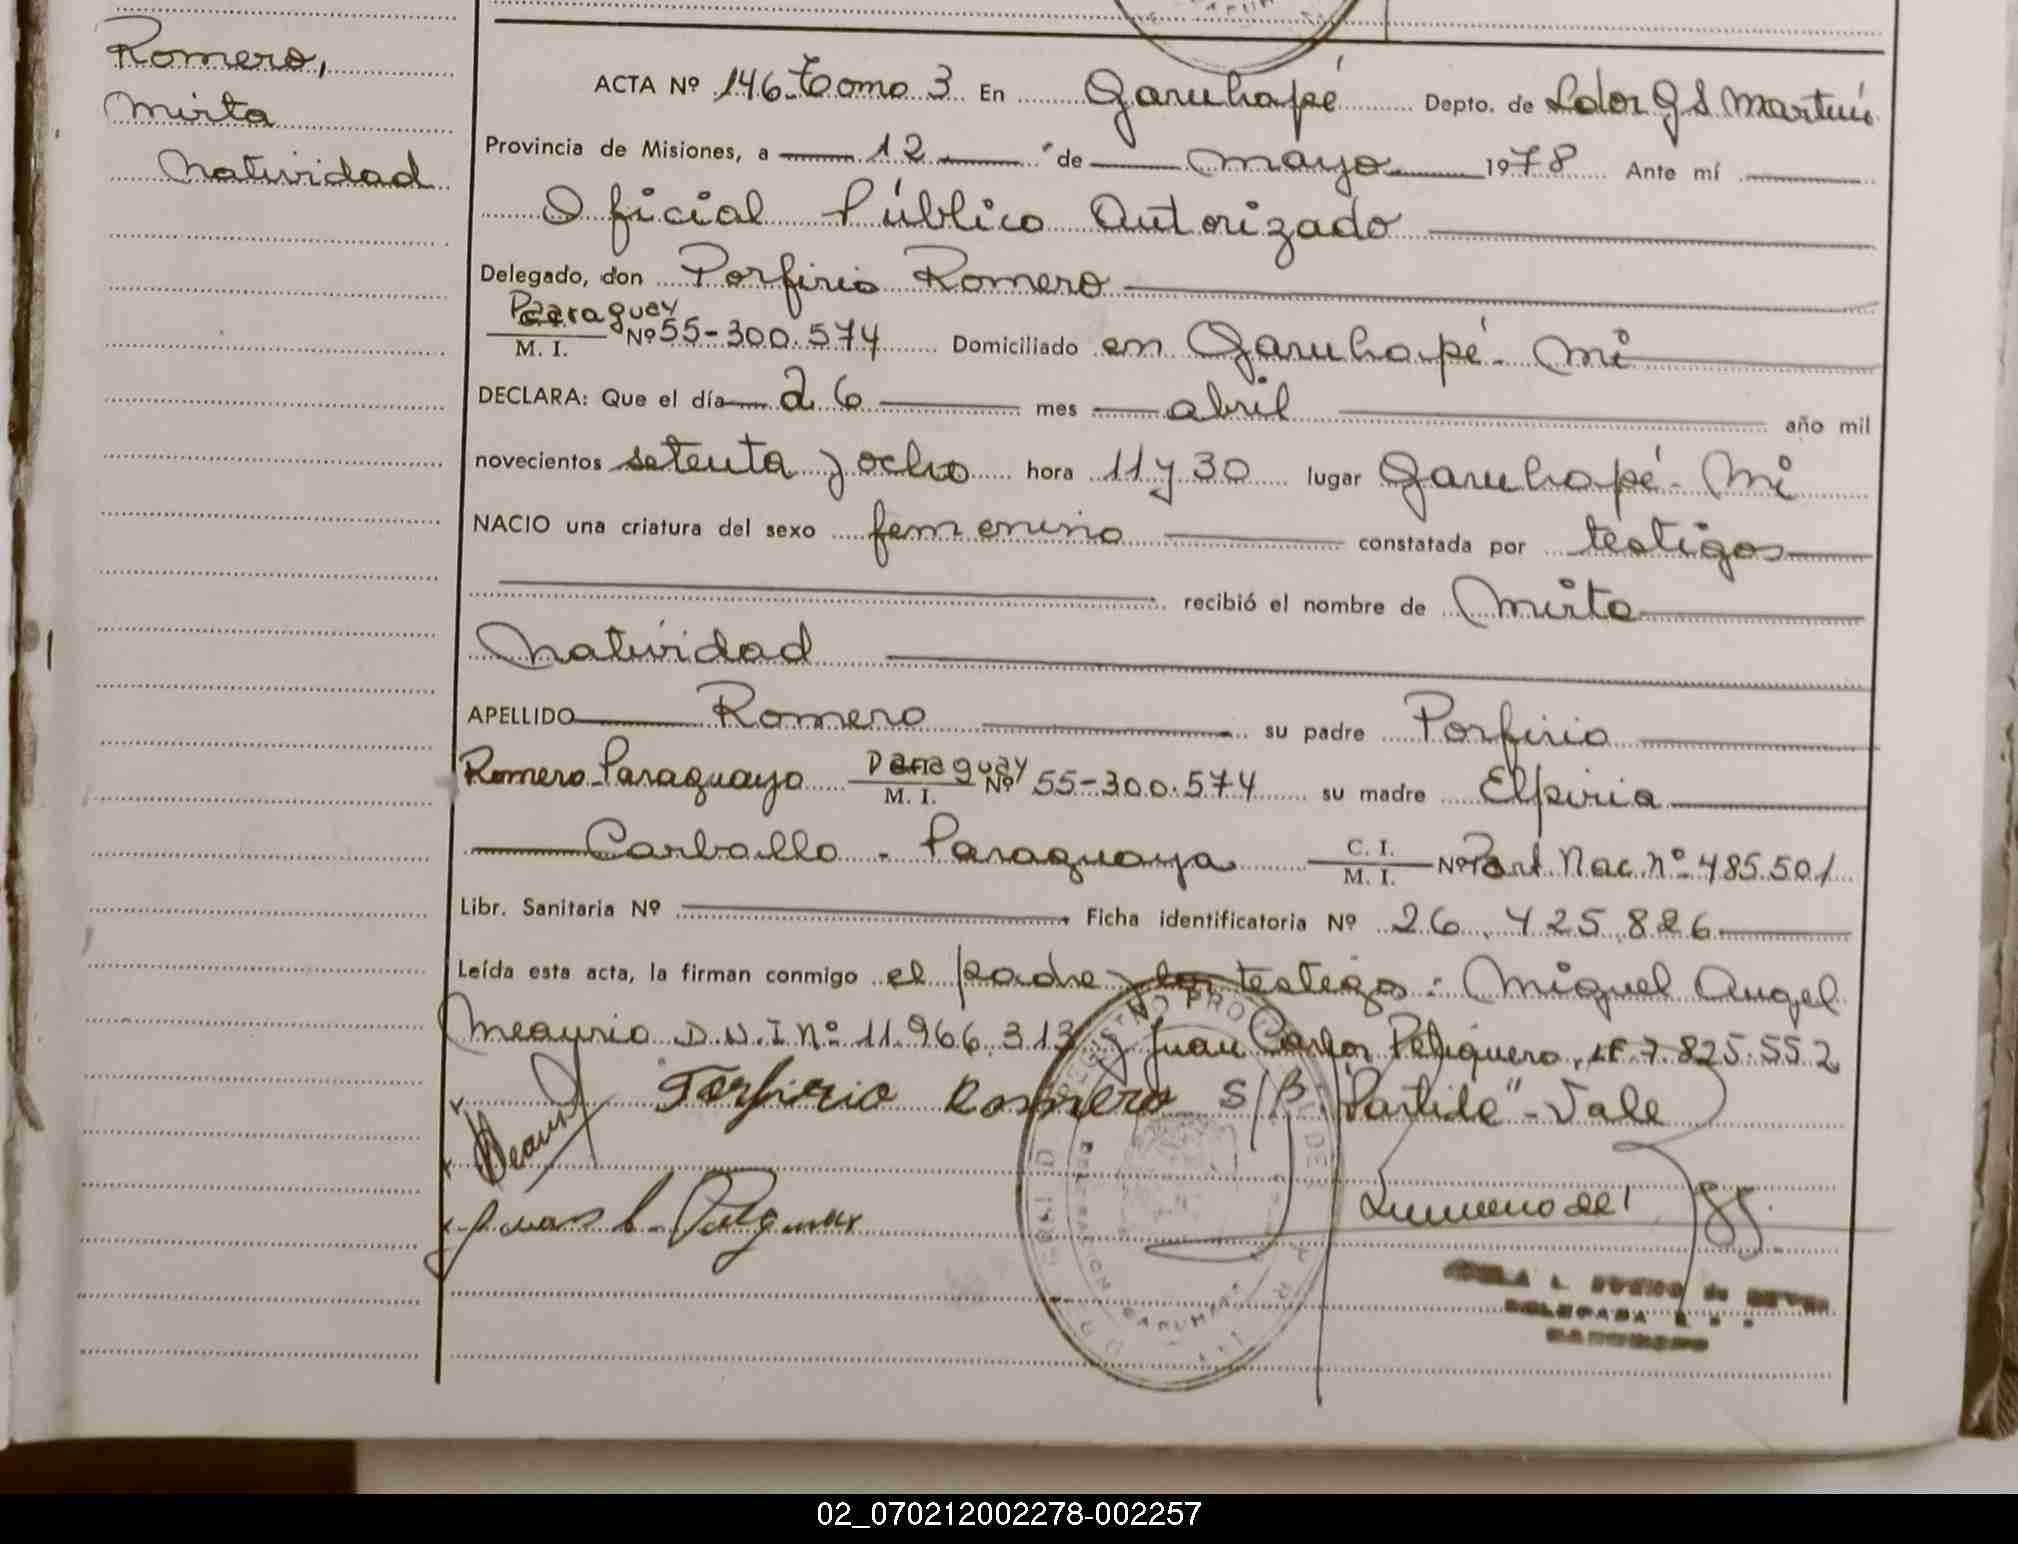 Romero,
Mirta
Natividad
ACTA Nº 146. Tomo 3 En Garuhapé Depto. de Ldor G S. Martín
Provincia de Misiones, a 12 de mayo 1978 Ante mí
Oficial Público Autorizado
Delegado, don Porfirio Romero
Paraguay
M. I. Nº 55-300.574 Domiciliado en Garuhapé - Mi
DECLARA: Que el día 26 mes abril año mil
novecientos setenta y ocho hora 11 y 30 lugar Garuhapé - Mi
NACIO una criatura del sexo femenino constatada por testigos
recibió el nombre de Mirta
Natividad
APELLIDO Romero su padre Porfirio
Romero - Paraguayo Paraguay M. I. Nº 55-300.574 su madre Elpiria
Carballo - Paraguaya C. I. M. I. Nº Part. Nac. Nº 485.501
Libr. Sanitaria Nº Ficha identificatoria Nº 26.425.826
Leída esta acta, la firman conmigo el padre y los testigos: Miguel Angel
Meaurio D.N.I Nº 11.966.313 y Juan Carlos 7.825.552
Porfirio Romero S/B "Partida" - Vale
Meaurio
Juan C.
REGISTRO PROV
DELEGADA
02_070212002278-002257